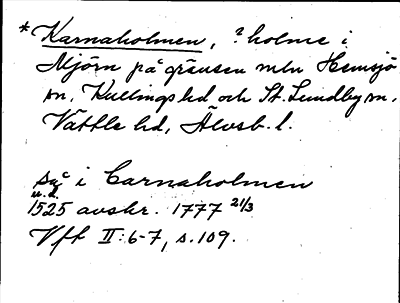 *Karnaholmen, ? holme i
Mjörn på gränsen mln Hemsjö
sn, Kullings hd och St. Lundby sn,
Vättle hd, Älvsb. l.
så i Carnaholmen
u. d.
1525 avskr. 1777 21/3
Vft II:6-7, s. 109.